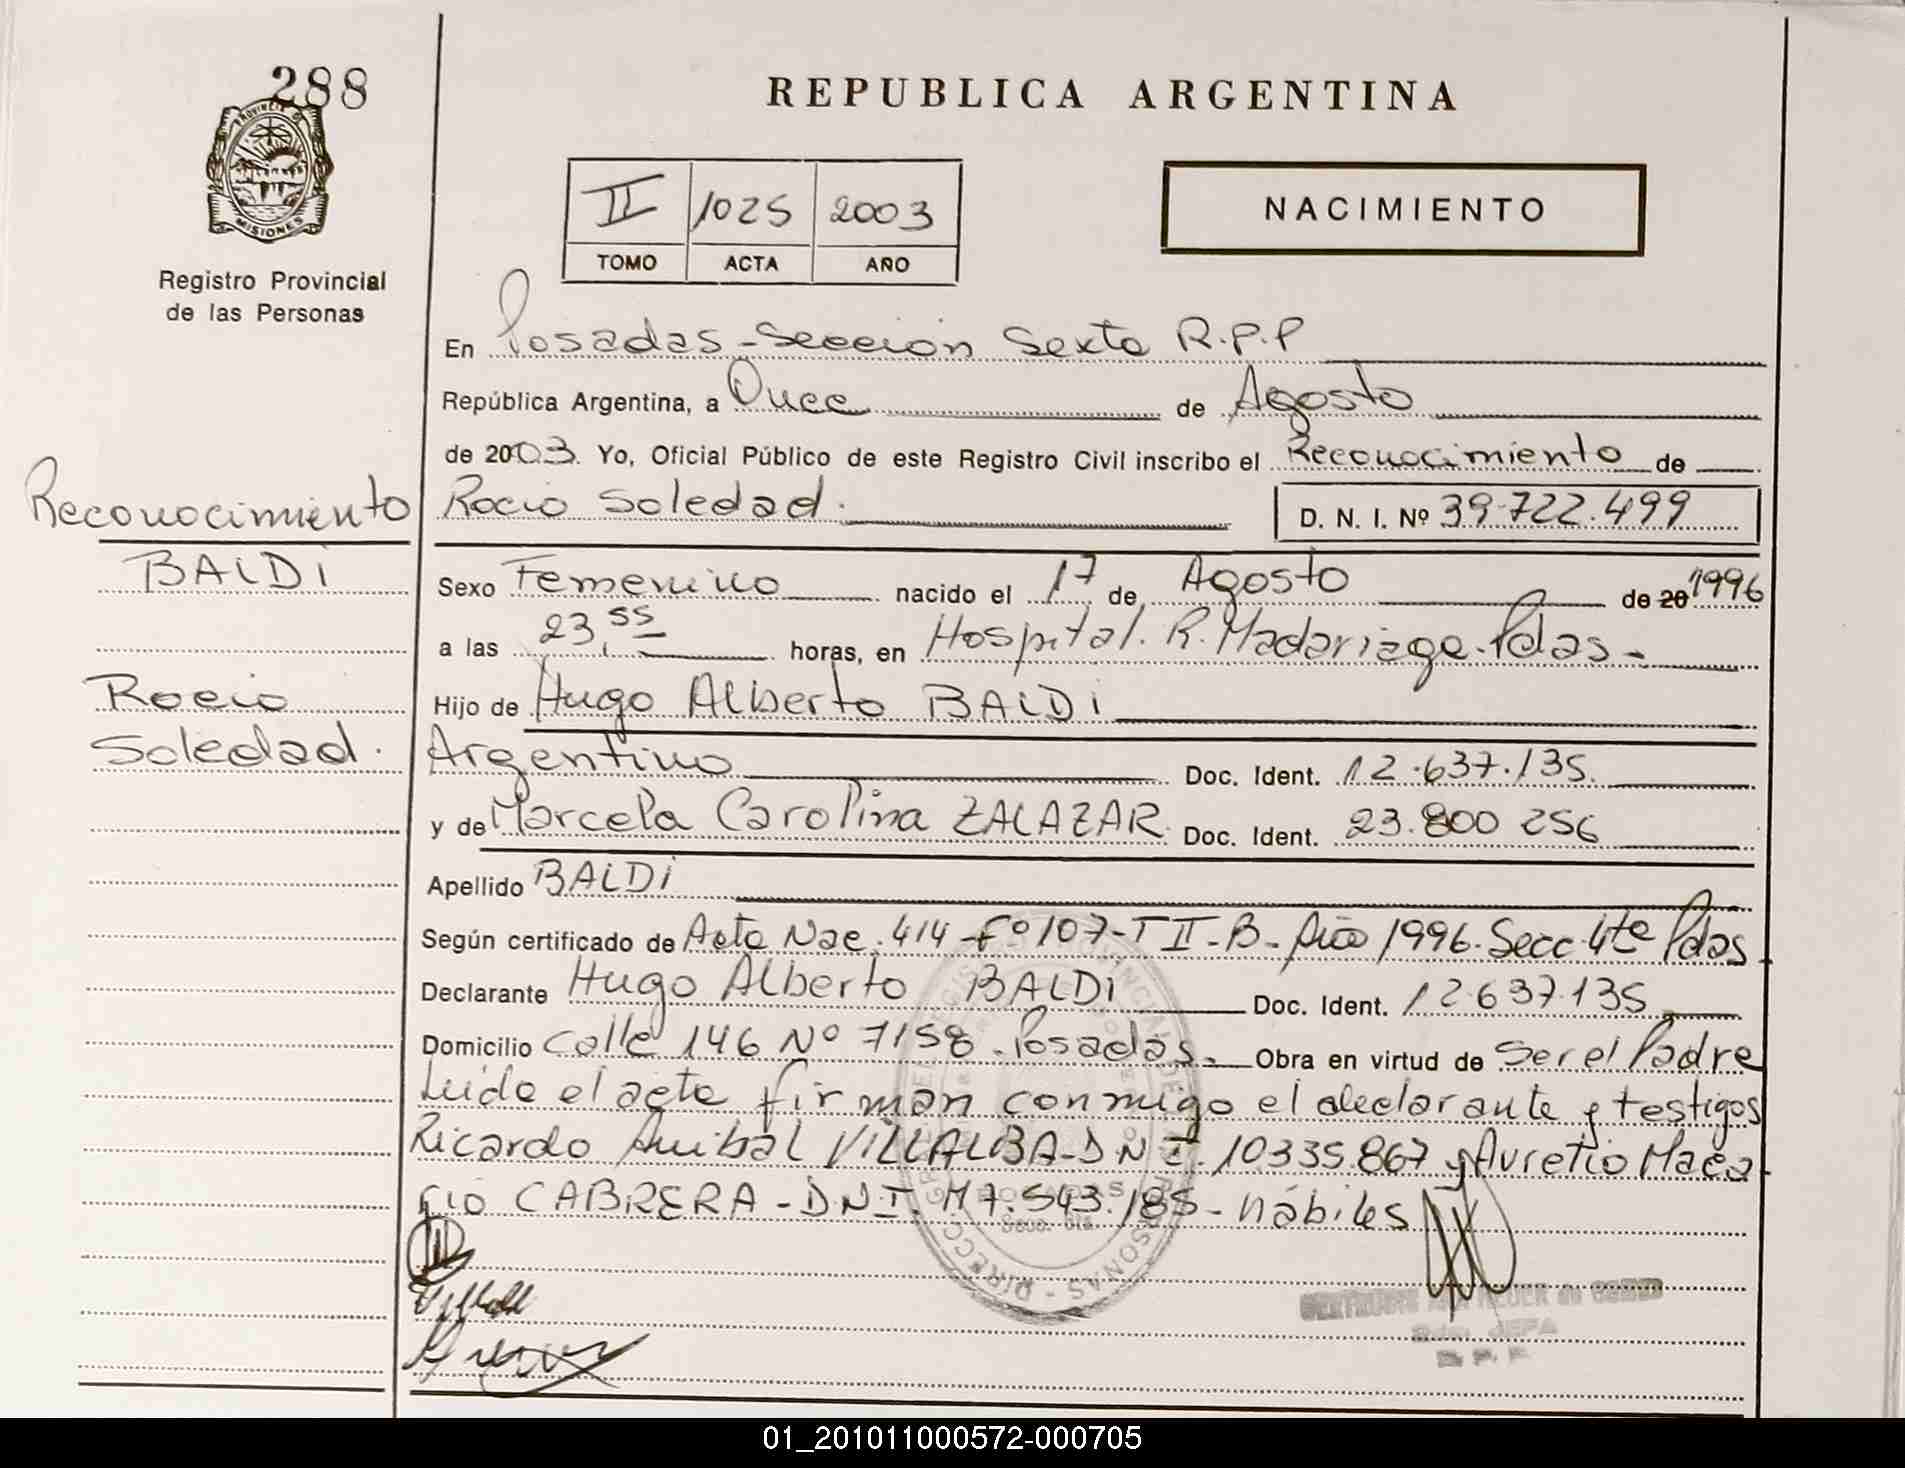 288
REPUBLICA ARGENTINA
PROVINCIA DE
MISIONES
Registro Provincial
de las Personas
II 1025 2003
TOMO ACTA AÑO
NACIMIENTO
En Posadas - Sección Sexta R.P.P
República Argentina, a Once de Agosto
de 2003. Yo, Oficial Público de este Registro Civil inscribo el Reconocimiento de
Rocio Soledad. D. N. I. Nº 39.722.499
Reconocimiento
BALDI
Rocio
Soledad.
Sexo Femenino nacido el 17 de Agosto de 20 1996
a las 23,55 horas, en Hospital. R. Madariaga. Pdas -
Hijo de Hugo Alberto BALDI
Argentino Doc. Ident. 12.637.135.
y de Marcela Carolina ZALAZAR Doc. Ident. 23.800 256
Apellido BALDI
Según certificado de Acta Nac. 414 - Fº 107 - T II - B - Año 1996. Secc. 4ta Pdas.
Declarante Hugo Alberto BALDI Doc. Ident. 12.637.135
Domicilio Calle 146 Nº 7158. Posadas. Obra en virtud de Ser el Padre
Leida el acta firman conmigo el declarante y testigos
Ricardo Anibal VILLALBA - D N I. 10335.867 y Aurelio Maca-
rio CABRERA - D.N.I. M 7.543.185 - hábiles
01_201011000572-000705